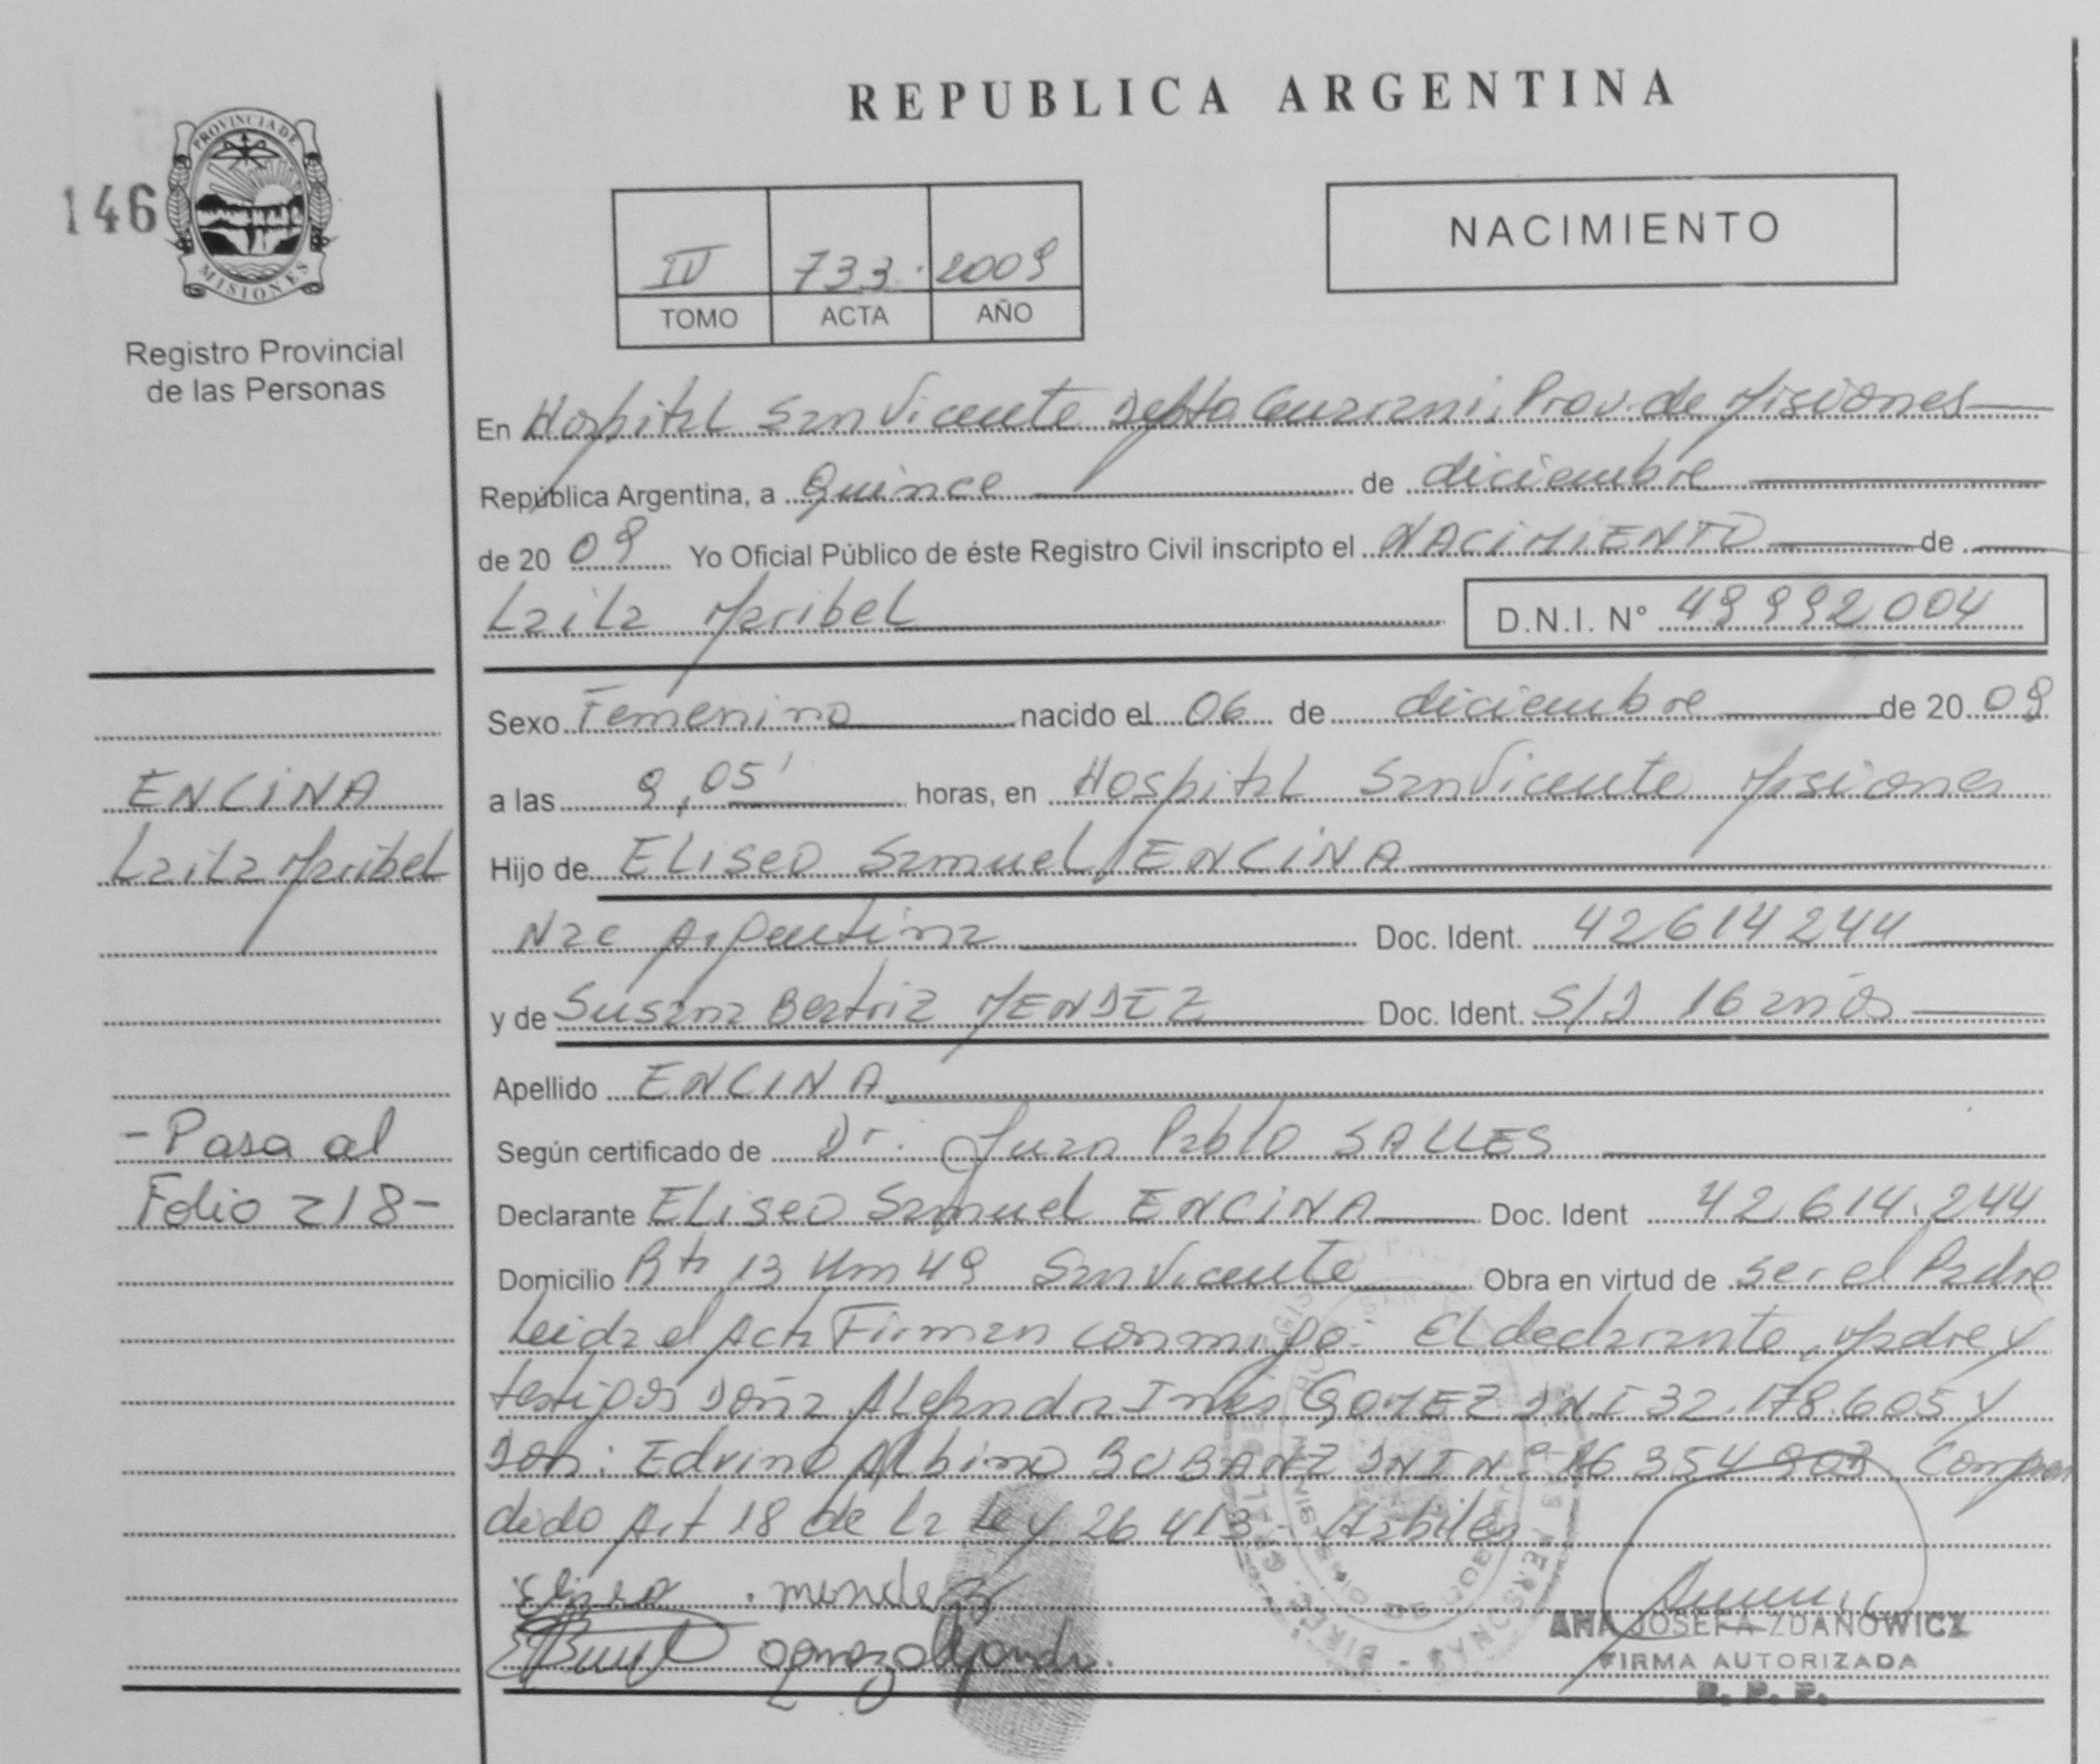 REPUBLICA ARGENTINA
146
PROVINCIA DE
MISIONES
Registro Provincial
de las Personas
NACIMIENTO
IV 733 2009
TOMO ACTA AÑO
En Hospital San Vicente Depto Guarani, Prov. de Misiones
República Argentina, a Quince de diciembre
de 2009 Yo Oficial Público de éste Registro Civil inscripto el NACIMIENTO de
Laila Maribel D.N.I. Nº 49992004
Sexo Femenino nacido el 06 de diciembre de 2009
a las 9,05' horas, en Hospital San Vicente Misiones
Hijo de Eliseo Samuel ENCINA
Nac Argentina Doc. Ident. 42614244
y de Susana Beatriz MENDEZ Doc. Ident. S/D 16 años
Apellido ENCINA
Según certificado de Dr. Juan Pablo SALLES
Declarante Eliseo Samuel ENCINA Doc. Ident 42.614.244
Domicilio Rta 13 Km 49 San Vicente Obra en virtud de ser el Padre
Leida el Acta Firman conmigo: El declarante, Madre y
testigos Doña Alejandra Ines GOMEZ DNI 32.178.605 y
Don: Edvino Albino DNI Nº 16 354 903 Compren
dido Art 18 de la Ley 26 413 - Habiles
ENCINA
Laila Maribel
- Pasa al
Folio 218 -
Eliseo mendez
gomez alejandra.
ANA JOSEFA ZDANOWICZ
FIRMA AUTORIZADA
R. P. P.